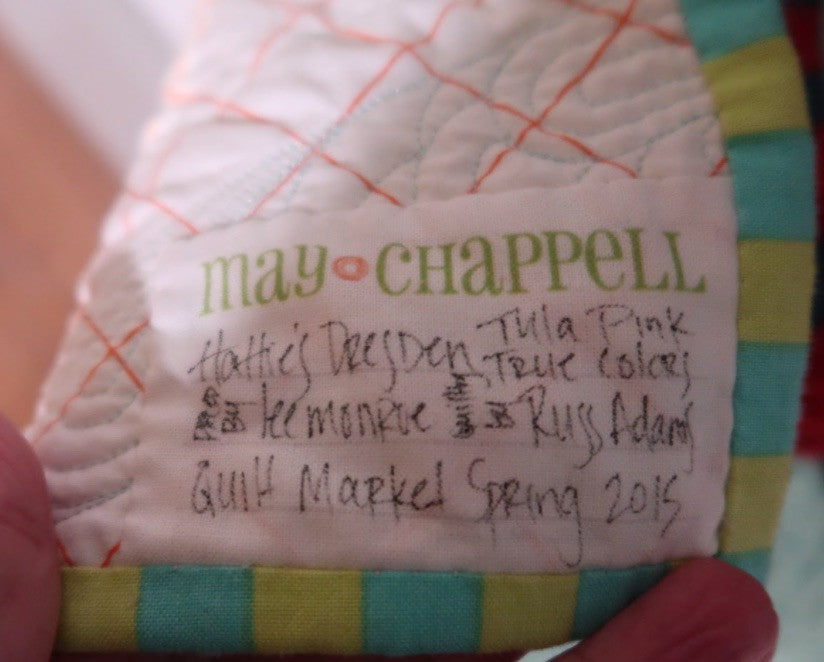 may chappell
Hattie's Dresden Tula Pink True Colors
PREP BY lee monroe quilting by Russ Adams
Quilt Market Spring 2015